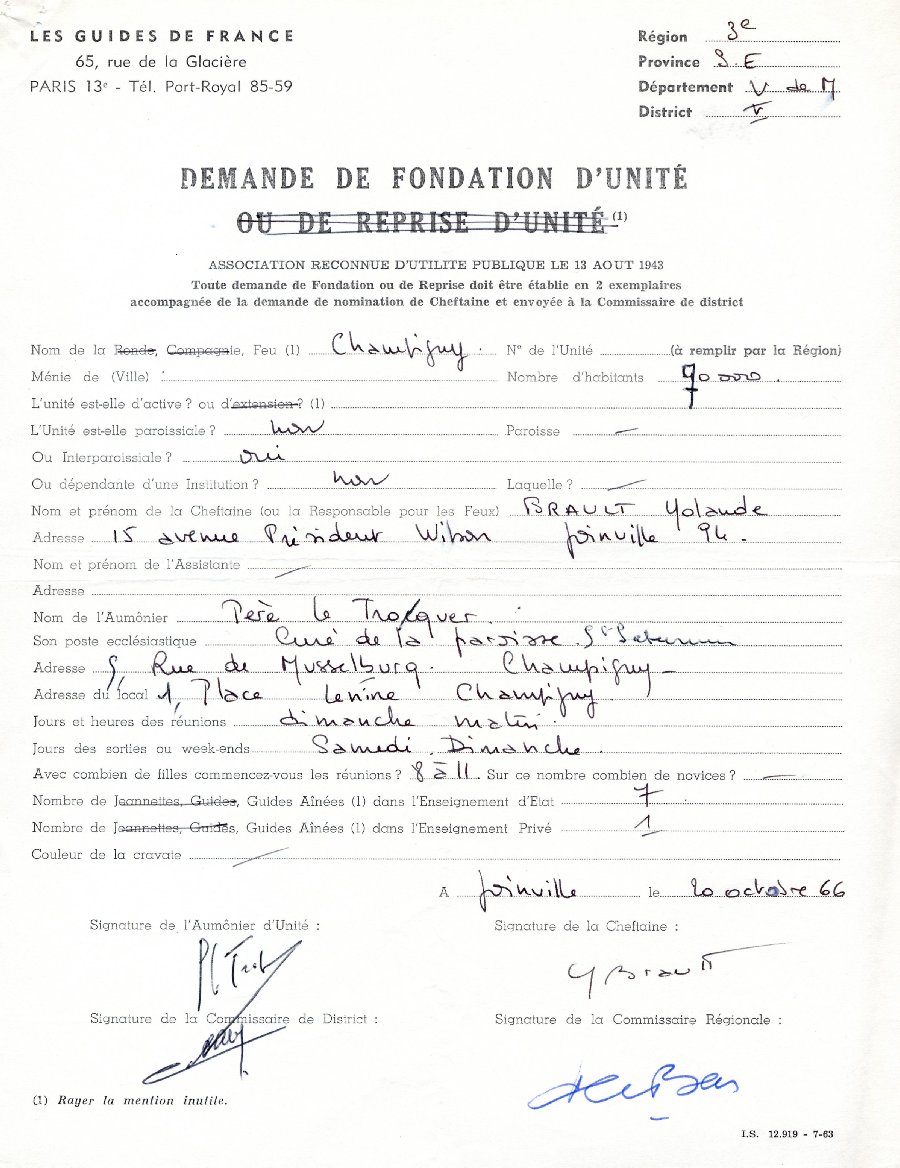 LES GUIDES DE FRANCE
65, rue de la Glacière
PARIS 13e - Tél. Port-Royal 85-59
Région 3e
Province S.E
Département V de M
District V
DEMANDE DE FONDATION D'UNITÉ
OU DE REPRISE D'UNITÉ (1)
ASSOCIATION RECONNUE D'UTILITE PUBLIQUE LE 13 AOUT 1943
Toute demande de Fondation ou de Reprise doit être établie en 2 exemplaires
accompagnée de la demande de nomination de Cheftaine et envoyée à la Commissaire de district
Nom de la Ronde, Compagnie, Feu (1) Champigny. N° de l'Unité (à remplir par la Région)
Ménie de (Ville) : Nombre d'habitants 70 000.
L'unité est-elle d'active ? ou d'extension ? (1)
L'Unité est-elle paroissiale ? non Paroisse —
Ou Interparoissiale ? oui
Ou dépendante d'une Institution ? non Laquelle ? —
Nom et prénom de la Cheftaine (ou la Responsable pour les Feux) BRAULT Yolande
Adresse 15 avenue Président Wilson Joinville 94.
Nom et prénom de l'Assistante —
Adresse
Nom de l'Aumônier Père le Trocquer.
Son poste ecclésiastique Curé de la paroisse St Saturnin
Adresse 5, Rue de Musselburg. Champigny
Adresse du local 1, Place Lénine Champigny
Jours et heures des réunions dimanche matin.
Jours des sorties ou week-ends Samedi. Dimanche.
Avec combien de filles commencez-vous les réunions ? 8 à 11. Sur ce nombre combien de novices ? —
Nombre de Jeannettes, Guides, Guides Aînées (1) dans l'Enseignement d'Etat 7
Nombre de Jeannettes, Guides, Guides Aînées (1) dans l'Enseignement Privé 1
Couleur de la cravate —
A Joinville le 20 octobre 66
Signature de l'Aumônier d'Unité :
Signature de la Cheftaine :
Y Brault
Signature de la Commissaire de District :
Signature de la Commissaire Régionale :
(1) Rayer la mention inutile.
I.S. 12.919 - 7-63